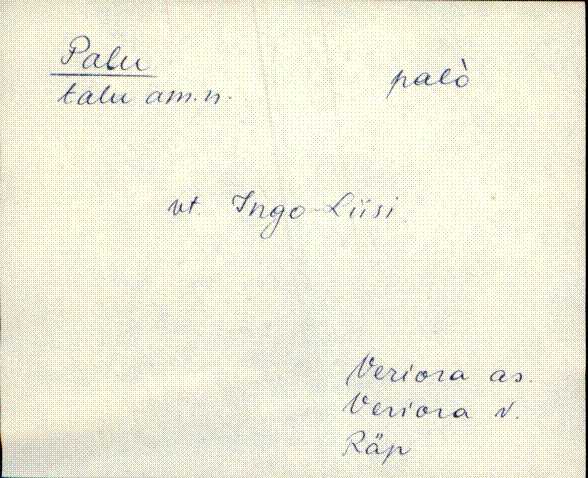 Palu palò
talu am.n.
vt. Ingo-Liisi
Veriora as.
Veriora v.
Räp